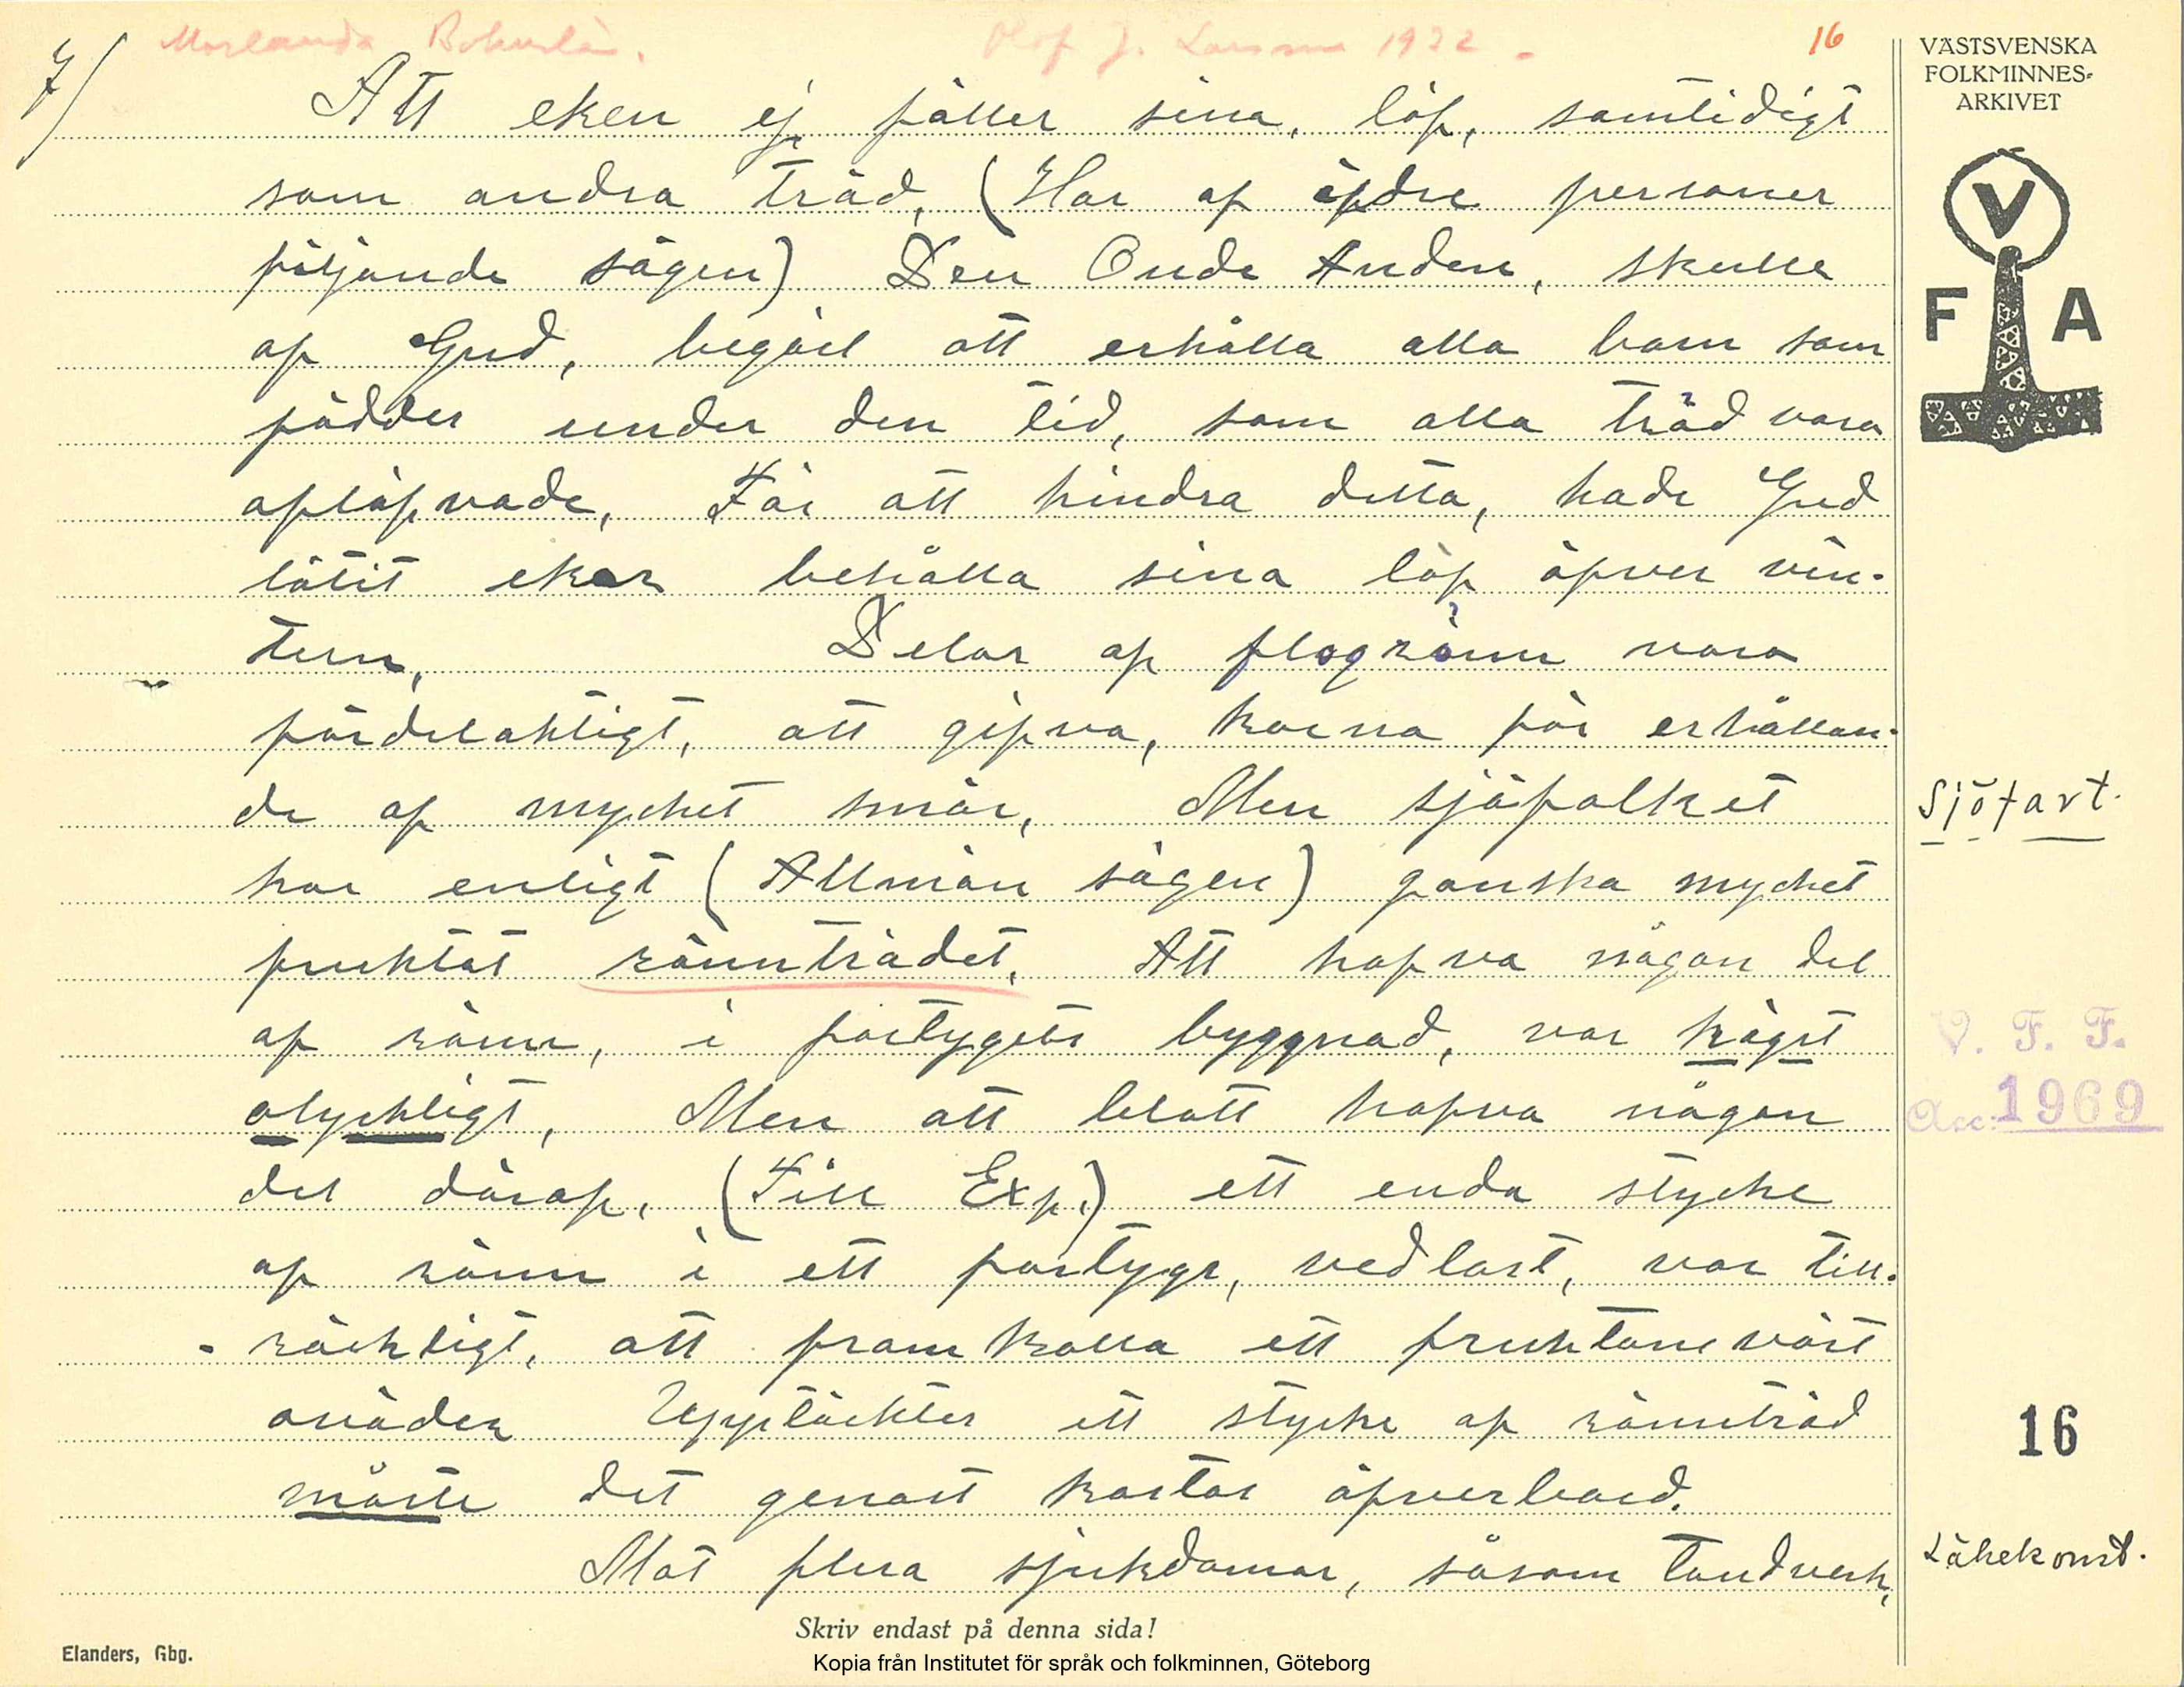 7/
Morlanda Bohuslän.
Olof J. Larsson 1922 -
16
VÄSTSVENSKA
FOLKMINNES-
ARKIVET
V
F A
Att eken ej fäller sina, löf, samtidigt
som andra träd, (Har af äldre personer
följande sägen) Den Onde Anden, skulle
af Gud, begärt att erhålla alla barn som
föddes under den tid, som alla träd voro
aflöfvade, För att hindra detta, hade Gud
låtit eken behålla sina löf öfver vin-
tern, Delar af flogrönn vara
fördelaktigt, att gifva, korna för erhållan-
de af mycket smör, Men sjöfolket
har enligt (Allmän sägen) ganska mycket
fruktat rönnträdet, Att hafva någon del
af rönn, i fartygets byggnad, var högst
olyckligt, Men att blott hafva någon
del däraf, (Till Exp.) ett enda stycke
af rönn i ett fartygs, vedlast, var till-
-räckligt, att framkalla ett fruktansvärt
oväder Upptäcktes ett stycke af rönnträd
måste det genast kastas öfverbord.
Mot flera sjukdomar, såsom Tandverk,
Sjöfart.
V. F. F.
Acc. 1969
16
Läkekonst.
Skriv endast på denna sida!
Elanders, Gbg.
Kopia från Institutet för språk och folkminnen, Göteborg